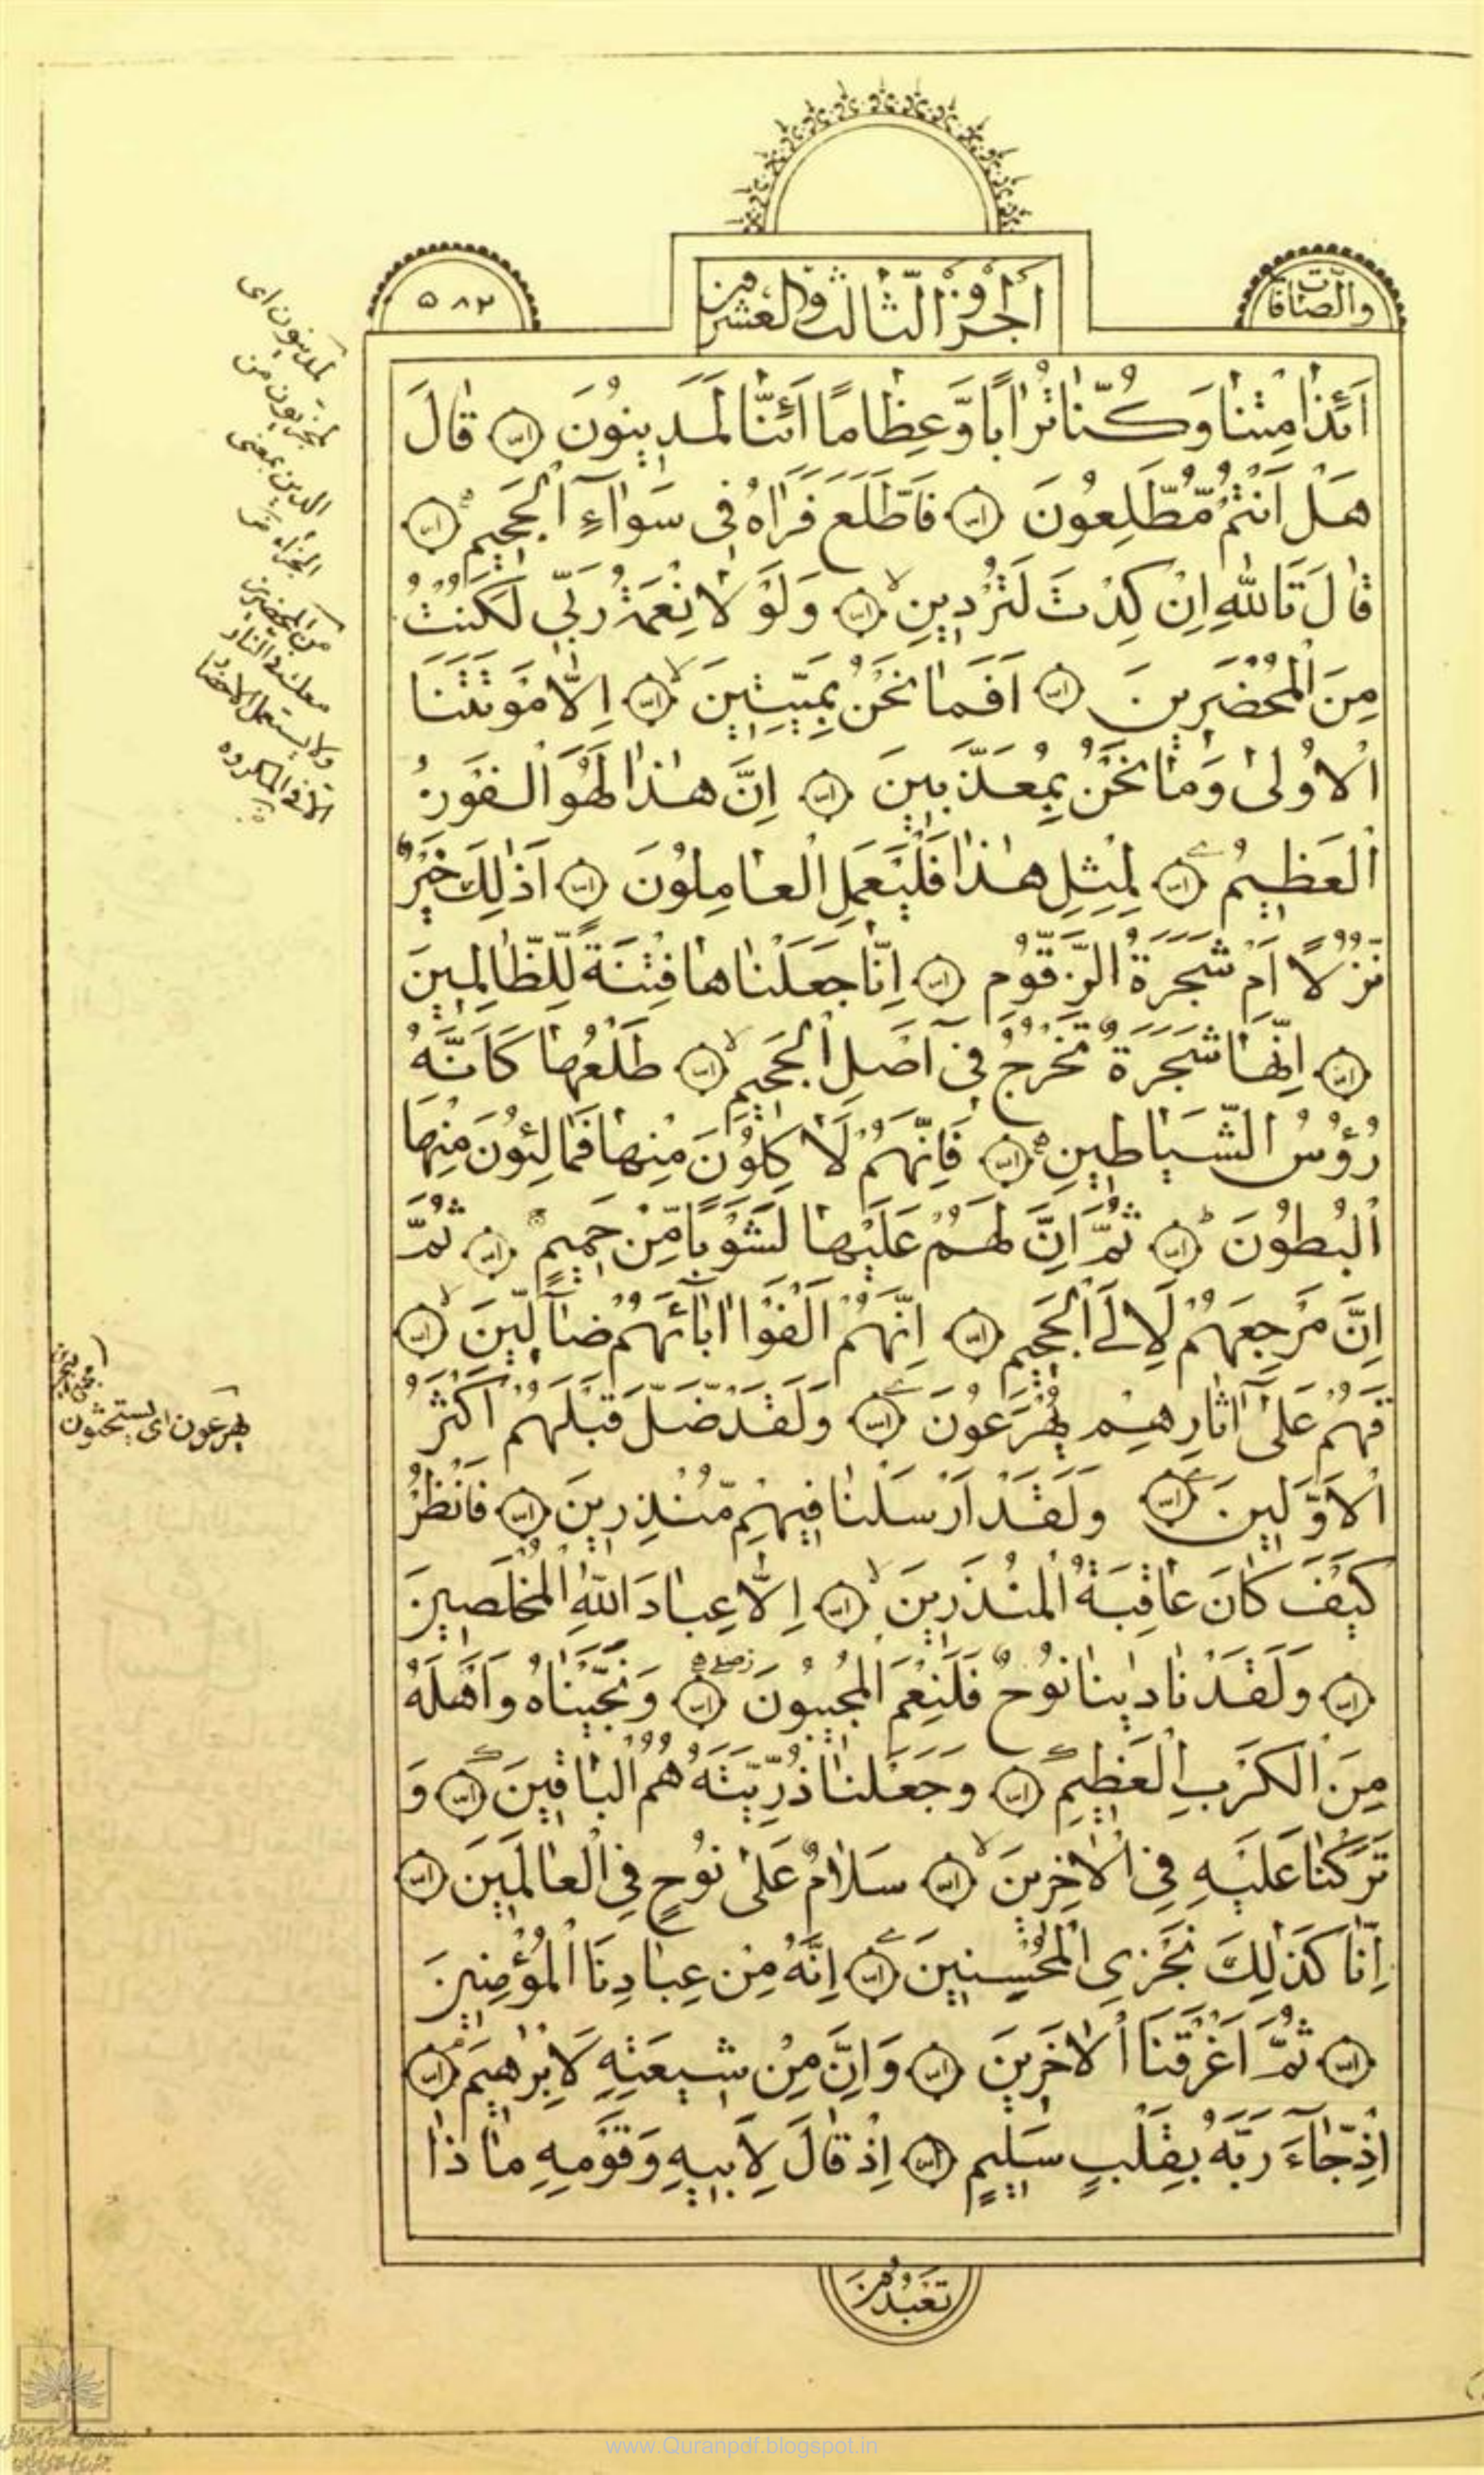 والصّافّات
الجزو الثالث والعشرون
٥٨٢
اَئِذٰا مِتْنٰا وَكُنّٰا تُرٰابًا وَّعِظٰامًا اَئِنّٰا لَمَدِينُونَ قٰالَ
هَلْ اَنْتُمْ مُّطَّلِعُونَ فَاطَّلَعَ فَرَاٰهُ فِى سَوٰآءِ الْجَحِيمِ
قٰالَ تَاللّٰهِ اِنْ كِدْتَ لَتُرْدِينِ وَلَوْ لٰا نِعْمَةُ رَبِّى لَكُنْتُ
مِنَ الْمُحْضَرِينَ اَفَمٰا نَحْنُ بِمَيِّتِينَ اِلّٰا مَوْتَتَنَا
الْاُولىٰ وَمٰا نَحْنُ بِمُعَذَّبِينَ اِنَّ هٰذٰا لَهُوَ الْفَوْزُ
الْعَظِيمُ لِمِثْلِ هٰذٰا فَلْيَعْمَلِ الْعٰامِلُونَ اَذٰلِكَ خَيْرٌ
نُزُلًا اَمْ شَجَرَةُ الزَّقُّومِ اِنّٰا جَعَلْنٰاهٰا فِتْنَةً لِلظّٰالِمِينَ
اِنَّهٰا شَجَرَةٌ تَخْرُجُ فِىٓ اَصْلِ الْجَحِيمِ طَلْعُهٰا كَاَنَّهُ
رُؤُسُ الشَّيٰاطِينِ فَاِنَّهُمْ لَاٰكِلُونَ مِنْهٰا فَمٰالِئُونَ مِنْهَا
الْبُطُونَ ثُمَّ اِنَّ لَهُمْ عَلَيْهٰا لَشَوْبًا مِّنْ حَمِيمٍ ثُمَّ
اِنَّ مَرْجِعَهُمْ لَاِلَى الْجَحِيمِ اِنَّهُمْ اَلْفَوْا اٰبٰآئَهُمْ ضٰآلِّينَ
فَهُمْ عَلىٰٓ اٰثٰارِهِمْ يُهْرَعُونَ وَلَقَدْ ضَلَّ قَبْلَهُمْ اَكْثَرُ
الْاَوَّلِينَ وَلَقَدْ اَرْسَلْنٰا فِيهِمْ مُّنْذِرِينَ فَانْظُرْ
كَيْفَ كٰانَ عٰاقِبَةُ الْمُنْذَرِينَ اِلّٰا عِبٰادَ اللّٰهِ الْمُخْلَصِينَ
وَلَقَدْ نٰادٰينٰا نُوحٌ فَلَنِعْمَ الْمُجِيبُونَ وَنَجَّيْنٰاهُ وَاَهْلَهُ
مِنَ الْكَرْبِ الْعَظِيمِ وَجَعَلْنٰا ذُرِّيَّتَهُ هُمُ الْبٰاقِينَ وَ
تَرَكْنٰا عَلَيْهِ فِى الْاٰخِرِينَ سَلٰامٌ عَلىٰ نُوحٍ فِى الْعٰالَمِينَ
اِنّٰا كَذٰلِكَ نَجْزِى الْمُحْسِنِينَ اِنَّهُ مِنْ عِبٰادِنَا الْمُؤْمِنِينَ
ثُمَّ اَغْرَقْنَا الْاٰخَرِينَ وَاِنَّ مِنْ شِيعَتِهِ لَاِبْرٰهِيمَ
اِذْ جٰآءَ رَبَّهُ بِقَلْبٍ سَلِيمٍ اِذْ قٰالَ لِاَبِيهِ وَقَوْمِهِ مٰا ذٰا
تَعْبُدُونَ
لمدينون اى
لمجزيون من
الدين بمعنى
الجزاء
من المحضرين
معك فى النار
ولا يستعمل الاحضار
الا فى المكروه
يهرعون اى يستحثون
www.Quranpdf.blogspot.in